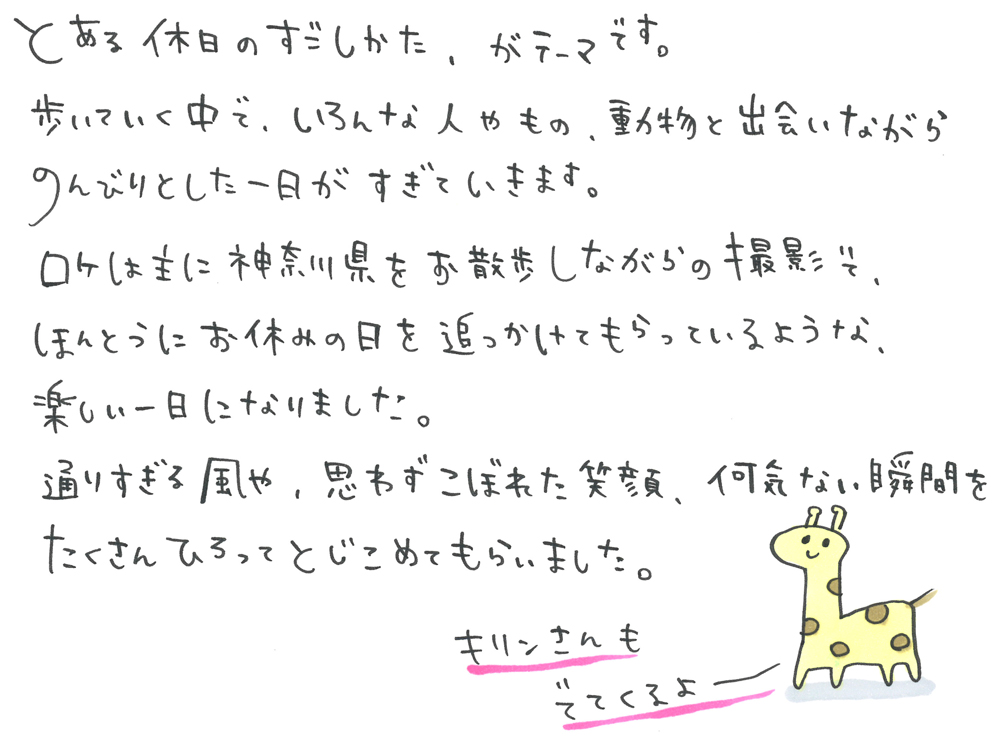 とある休日のすごしかた、がテーマです。
歩いていく中で、いろんな人やもの、動物と出会いながら
のんびりとした一日がすぎていきます。
ロケは主に神奈川県をお散歩しながらの撮影で、
ほんとうにお休みの日を追っかけてもらっているような、
楽しい一日になりました。
通りすぎる風や、思わずこぼれた笑顔、何気ない瞬間を
たくさんひろってとじこめてもらいました。
キリンさんも
でてくるよー